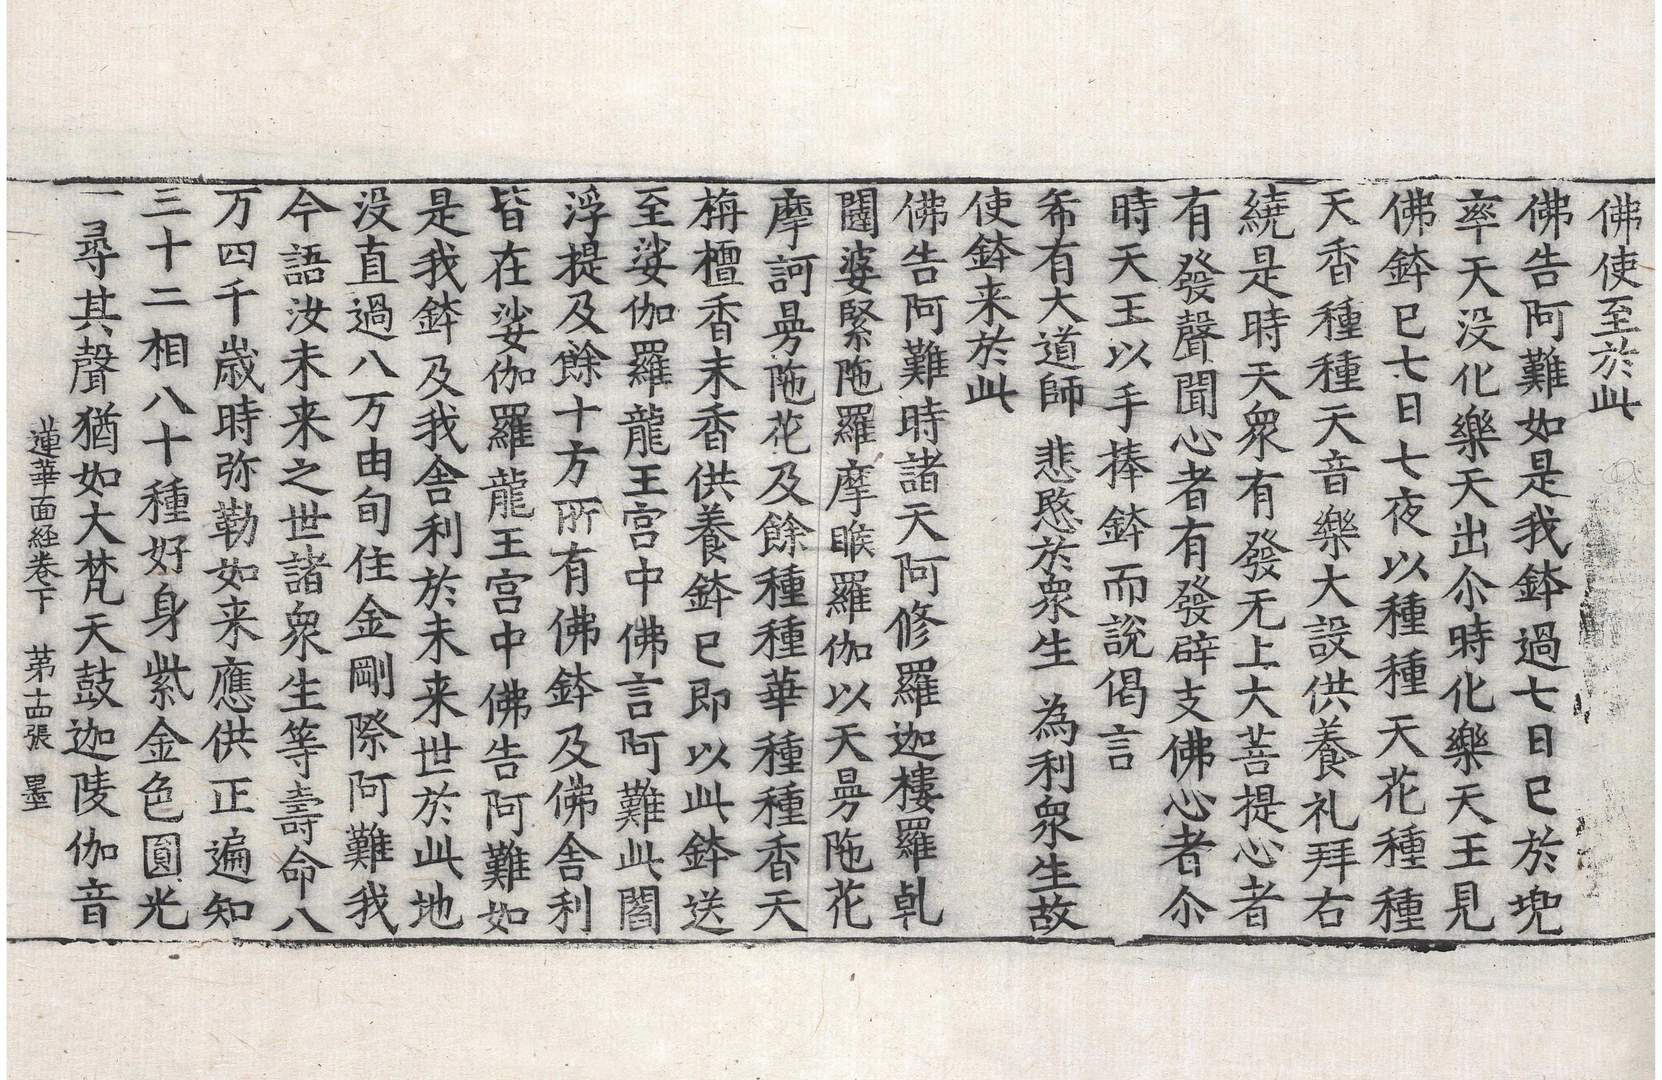 佛使至於此
佛告阿難如是我鉢過七日已於兜
率天没化樂天出尒時化樂天王見
佛鉢已七日七夜以種種天花種種
天香種種天音樂大設供養礼拜右
繞是時天衆有發无上大菩提心者
有發聲聞心者有發辟支佛心者尒
時天王以手捧鉢而說偈言
希有大道師　悲愍於衆生　為利衆生故
使鉢来於此
佛告阿難時諸天阿修羅迦樓羅乹
闥婆緊陁羅摩睺羅伽以天曼陁花
摩訶曼陁花及餘種種華種種香天
栴檀香末香供養鉢已即以此鉢送
至娑伽羅龍王宫中佛言阿難此閻
浮提及餘十方所有佛鉢及佛舍利
皆在娑伽羅龍王宫中佛告阿難如
是我鉢及我舍利於未来世於此地
没直過八万由旬住金剛際阿難我
今語汝未来之世諸衆生等壽命八
万四千歲時弥勒如来應供正遍知
三十二相八十種好身紫金色圓光
一尋其聲猶如大梵天鼓迦陵伽音
蓮華面経卷下　第十四張　墨